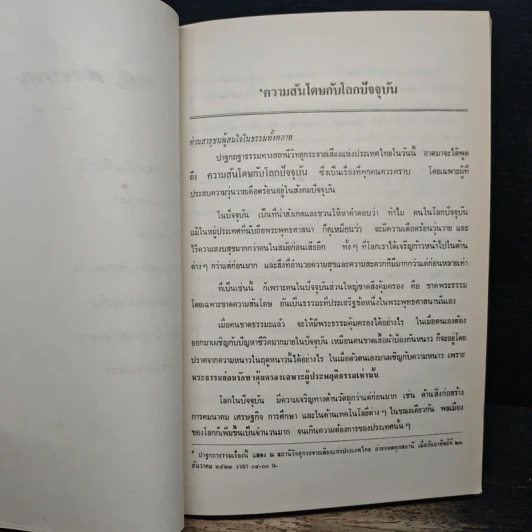 *ความสันโดษกับโลกปัจจุบัน
ท่านสาธุชนผู้สนใจในธรรมทั้งหลาย
ปาฐกถาธรรมทางสถานีวิทยุกระจายเสียงแห่งประเทศไทยในวันนี้ อาตมาจะได้พูด
ถึง ความสันโดษกับโลกปัจจุบัน ซึ่งเป็นเรื่องที่ทุกคนควรทราบ โดยเฉพาะผู้ที่
ประสบความวุ่นวายเดือดร้อนอยู่ในสังคมปัจจุบัน
ในปัจจุบัน เป็นที่น่าสังเกตและชวนให้หาคำตอบว่า ทำไม คนในโลกปัจจุบัน
แม้ในหมู่ประเทศที่นับถือพระพุทธศาสนา ก็ดูเหมือนว่า จะมีความเดือดร้อนวุ่นวาย และ
ไร้ความสงบสุขมากกว่าคนในสมัยก่อนเสียอีก ทั้ง ๆ ที่โลกเราได้เจริญก้าวหน้าไปในด้าน
ต่าง ๆ กว่าแต่ก่อนมาก และสิ่งที่อำนวยความสุขและความสะดวกก็มีมากกว่าแต่ก่อนหลายเท่า
ที่เป็นเช่นนี้ ก็เพราะคนในปัจจุบันส่วนใหญ่ขาดสิ่งคุ้มครอง คือ ขาดพระธรรม
โดยเฉพาะขาดความสันโดษ อันเป็นธรรมะที่ประเสริฐข้อหนึ่งในพระพุทธศาสนานี้เอง
เมื่อคนขาดธรรมะแล้ว จะให้มีพระธรรมคุ้มครองได้อย่างไร ในเมื่อตัวเองต้อง
ออกมาเผชิญกับปัญหาชีวิตมากมายในปัจจุบัน เหมือนคนขาดเสื้อผ้าป้องกันหนาว ก็จะอยู่โดย
ปราศจากความหนาวในฤดูหนาวนี้ได้อย่างไร ในเมื่อตัวตนเองมาเผชิญกับความหนาว เพราะ
พระธรรมย่อมรักษาคุ้มครองเฉพาะผู้ประพฤติธรรมเท่านั้น
โลกในปัจจุบัน มีความเจริญทางด้านวัตถุกว่าแต่ก่อนมาก เช่น ด้านสิ่งก่อสร้าง
การคมนาคม เศรษฐกิจ การศึกษา และในด้านเทคโนโลยีต่าง ๆ ในขณะเดียวกัน พลเมือง
ของโลกก็เพิ่มขึ้นเป็นจำนวนมาก จนเกินความต้องการของประเทศนั้น ๆ
* ปาฐกถาธรรมเรื่องนี้ แสดง ณ สถานีวิทยุกระจายเสียงแห่งประเทศไทย ถ่ายทอดทุกสถานี เมื่อวันอาทิตย์ที่ ๒๑
ธันวาคม ๒๕๒๑ เวลา ๐๘:๐๐ น.